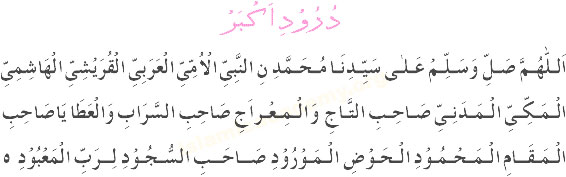 دُرُوْدِ اَکْبَرْ
اَللّٰهُمَّ صَلِّ وَسَلِّمْ عَلٰى سَيِّدِنَا مُحَمَّدِ نِ النَّبِيِّ الْاُمِّيِّ الْعَرَبِيِّ الْقُرَيْشِيِّ الْهَاشِمِيِّ
الْمَكِّيِّ الْمَدَنِيِّ صَاحِبِ التَّاجِ وَالْمِعْرَاجِ صَاحِبِ السَّرَابِ وَالْعَطَا يَاصَاحِبِ
الْمَقَامِ الْمَحْمُوْدِ الْحَوْضِ الْمَوْرُوْدِ صَاحَبِ السُّجُوْدِ لِرَبِّ الْمَعْبُوْدِ ه